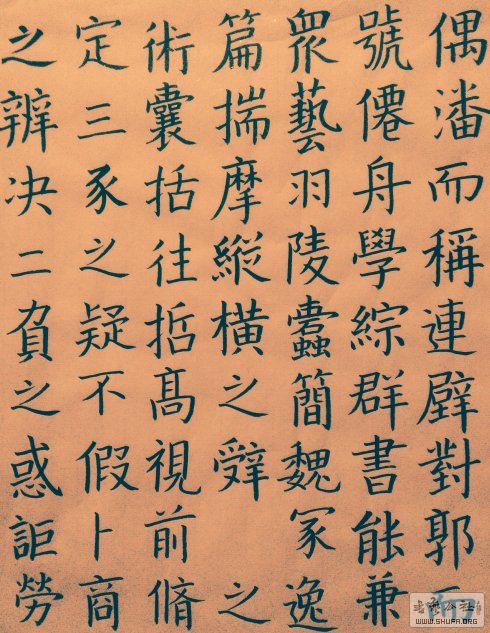 偶潘而稱連璧對郭
號僊舟學綜群書能兼
衆藝羽陵蠹簡魏冢逸
篇揣摩縱橫之辭之
術囊括往哲髙視前脩
定三豕之疑不假卜商
之辨决二負之惑詎勞
WWW.SHUFA.ORG